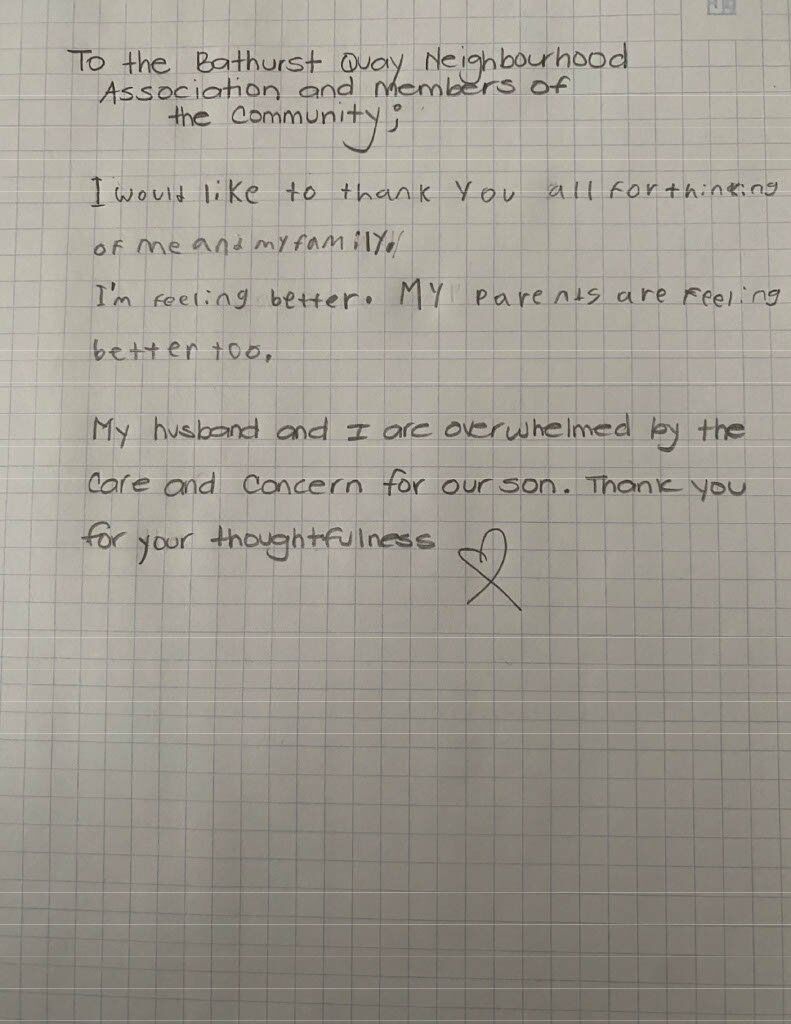 To the Bathurst Quay Neighbourhood
Association and Members of
the Community;
I would like to thank you all for thinking
of me and my family.
I'm feeling better. My parents are feeling
better too.
My husband and I are overwhelmed by the
care and concern for our son. Thank you
for your thoughtfulness